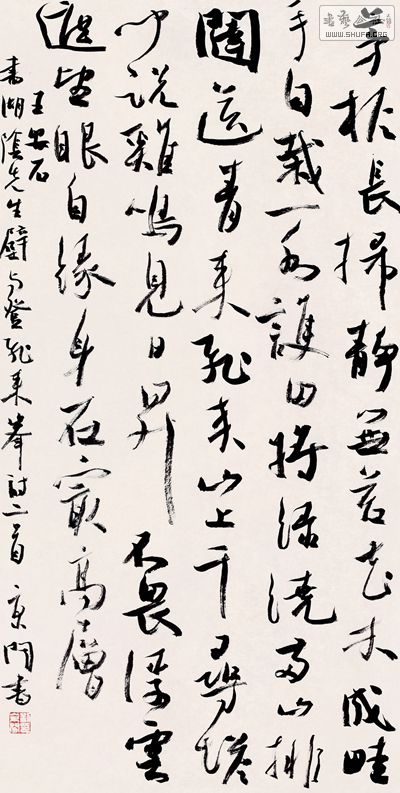 茅檐長掃静無苔花木成畦
手自栽一水護田將綠繞兩山排
闥送青來飛來山上千尋塔
聞說雞鳴見日昇 不畏浮雲
遮望眼自緣身在最高層
王安石
書湖陰先生壁与登飛來峯詩二首 門書
WWW.SHUFA.ORG